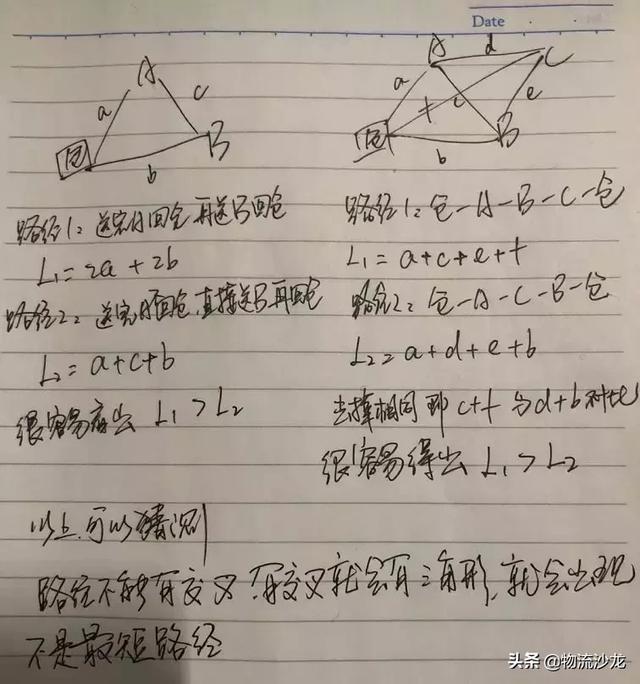 Date
A
a
c
仓
B
b
路径1：送完A回仓再送B回仓
L1=2a+2b
路径2：送完A不回仓，直接送B再回仓
L2=a+c+b
很容易看出 L1>L2
A
d
C
a
f
c
e
仓
B
b
路径1：仓-A-B-C-仓
L1=a+c+e+f
路径2：仓-A-C-B-仓
L2=a+d+e+b
去掉相同 即 c+f 与 d+b 对比
很容易得出 L1>L2
以上可以猜测
路径不能有交叉，有交叉就会有三角形，就会出现
不是最短路径
头条 @物流沙龙